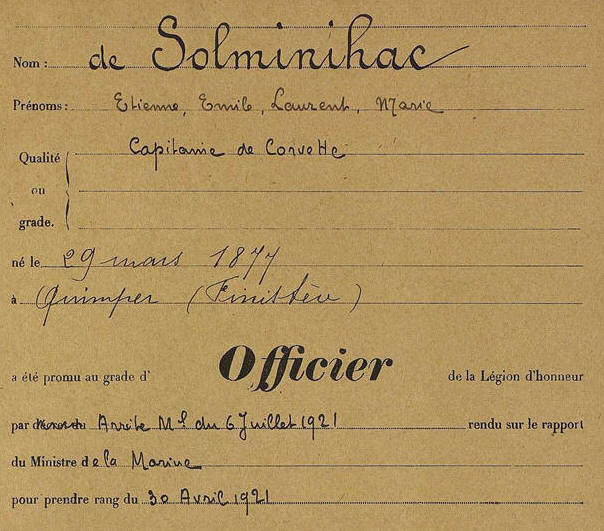 Nom : de Solminihac
Prénoms : Etienne, Emile, Laurent, Marie
Capitaine de Corvette
Qualité
ou
grade.
né le 29 mars 1877
à Quimper (Finistère)
a été promu au grade d' Officier de la Légion d'honneur
par Arrêté Ml du 6 Juillet 1921 rendu sur le rapport
du Ministre de la Marine
pour prendre rang du 30 Avril 1921